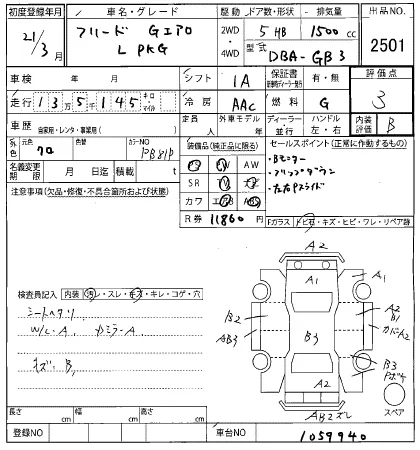 初度登録年月 車名・グレード 駆動 ドア数・形状 排気量 出品NO.
21/3月 フリード Gエアロ L PKG 2WD・4WD 5 HB 1500cc 2501
型式 DBA-GB3
車検 年 月 シフト IA 保証書 有・無 評価点
走行 13万5千145 キロ・マイル 冷房 AAC 燃料 G 3
車歴 自家用・レンタ・事業用( ) 定員 人 外車モデル年 ディーラー・並行 ハンドル 左・右 内装評価 B
外色 元色 クロ 色替 カラーNO PB81P 装備品(純正品に限る) セールスポイント(正常に作動するもの)
名義変更期限 月 日迄 積載 t PS PW AW
・Bモニター
・フリップダウン
・左右Pスライド
注意事項(欠品・修復・不具合箇所および状態) SR ナビ TV
カワ エアB ABS
R券 11860 Fガラス トビ石・キズ・ヒビ・ワレ・リペア跡
A2
A1 A1
検査員記入 内装 汚レ・スレ・キズ・キレ・コゲ・穴
シートヘタリ B2 A2 B1
W/C・A カミラーA AB3 B3 カバーA2
キズ・B1 B3 Pボケ
A2
AB2ズレ スペア
長さ cm 幅 cm 高さ cm
登録NO 車台NO 1059940